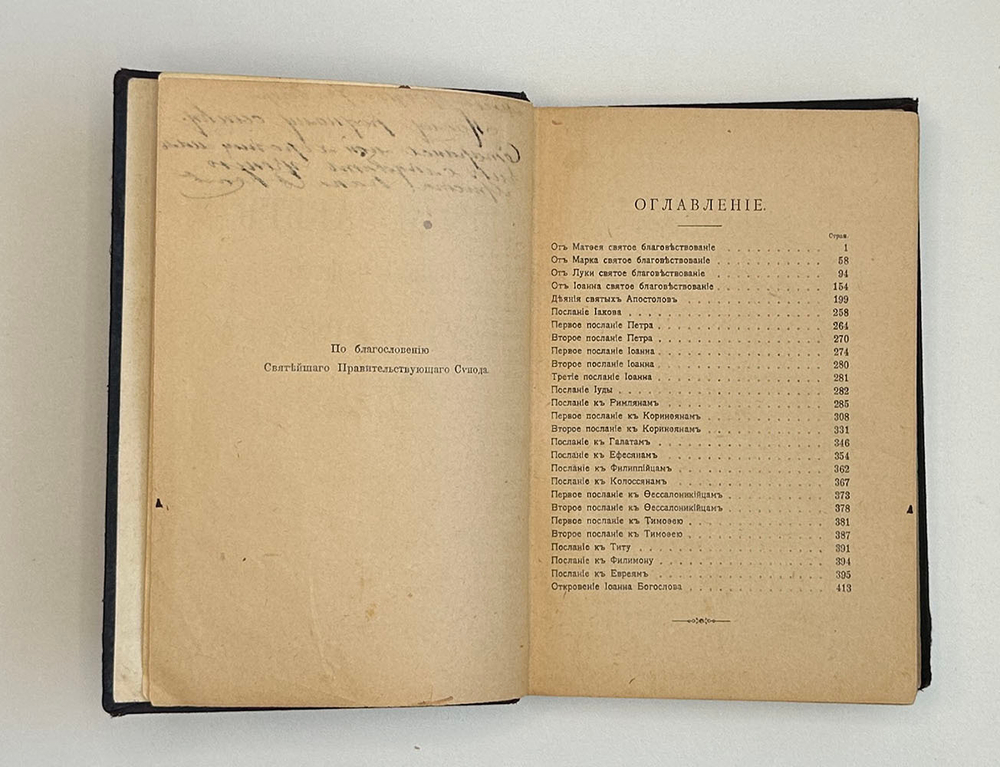 По благословенію
Святѣйшаго Правительствующаго Сѵнода.
ОГЛАВЛЕНІЕ.
Стран.
Отъ Матѳея святое благовѣствованіе 1
Отъ Марка святое благовѣствованіе 58
Отъ Луки святое благовѣствованіе 94
Отъ Іоанна святое благовѣствованіе 154
Дѣянія святыхъ Апостоловъ 199
Посланіе Іакова 258
Первое посланіе Петра 264
Второе посланіе Петра 270
Первое посланіе Іоанна 274
Второе посланіе Іоанна 280
Третіе посланіе Іоанна 281
Посланіе Іуды 282
Посланіе къ Римлянамъ 285
Первое посланіе къ Коринѳянамъ 308
Второе посланіе къ Коринѳянамъ 331
Посланіе къ Галатамъ 346
Посланіе къ Ефесянамъ 354
Посланіе къ Филиппійцамъ 362
Посланіе къ Колоссянамъ 367
Первое посланіе къ Ѳессалоникійцамъ 373
Второе посланіе къ Ѳессалоникійцамъ 378
Первое посланіе къ Тимоѳею 381
Второе посланіе къ Тимоѳею 387
Посланіе къ Титу 391
Посланіе къ Филимону 394
Посланіе къ Евреямъ 395
Откровеніе Іоанна Богослова 413